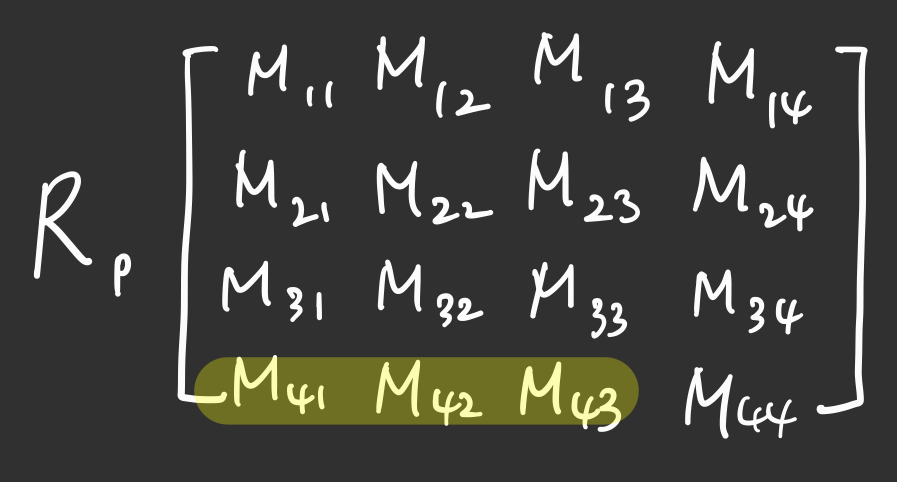 M₁₁ M₁₂ M₁₃ M₁₄
M₂₁ M₂₂ M₂₃ M₂₄
Rₚ
M₃₁ M₃₂ M₃₃ M₃₄
M₄₁ M₄₂ M₄₃ M₄₄